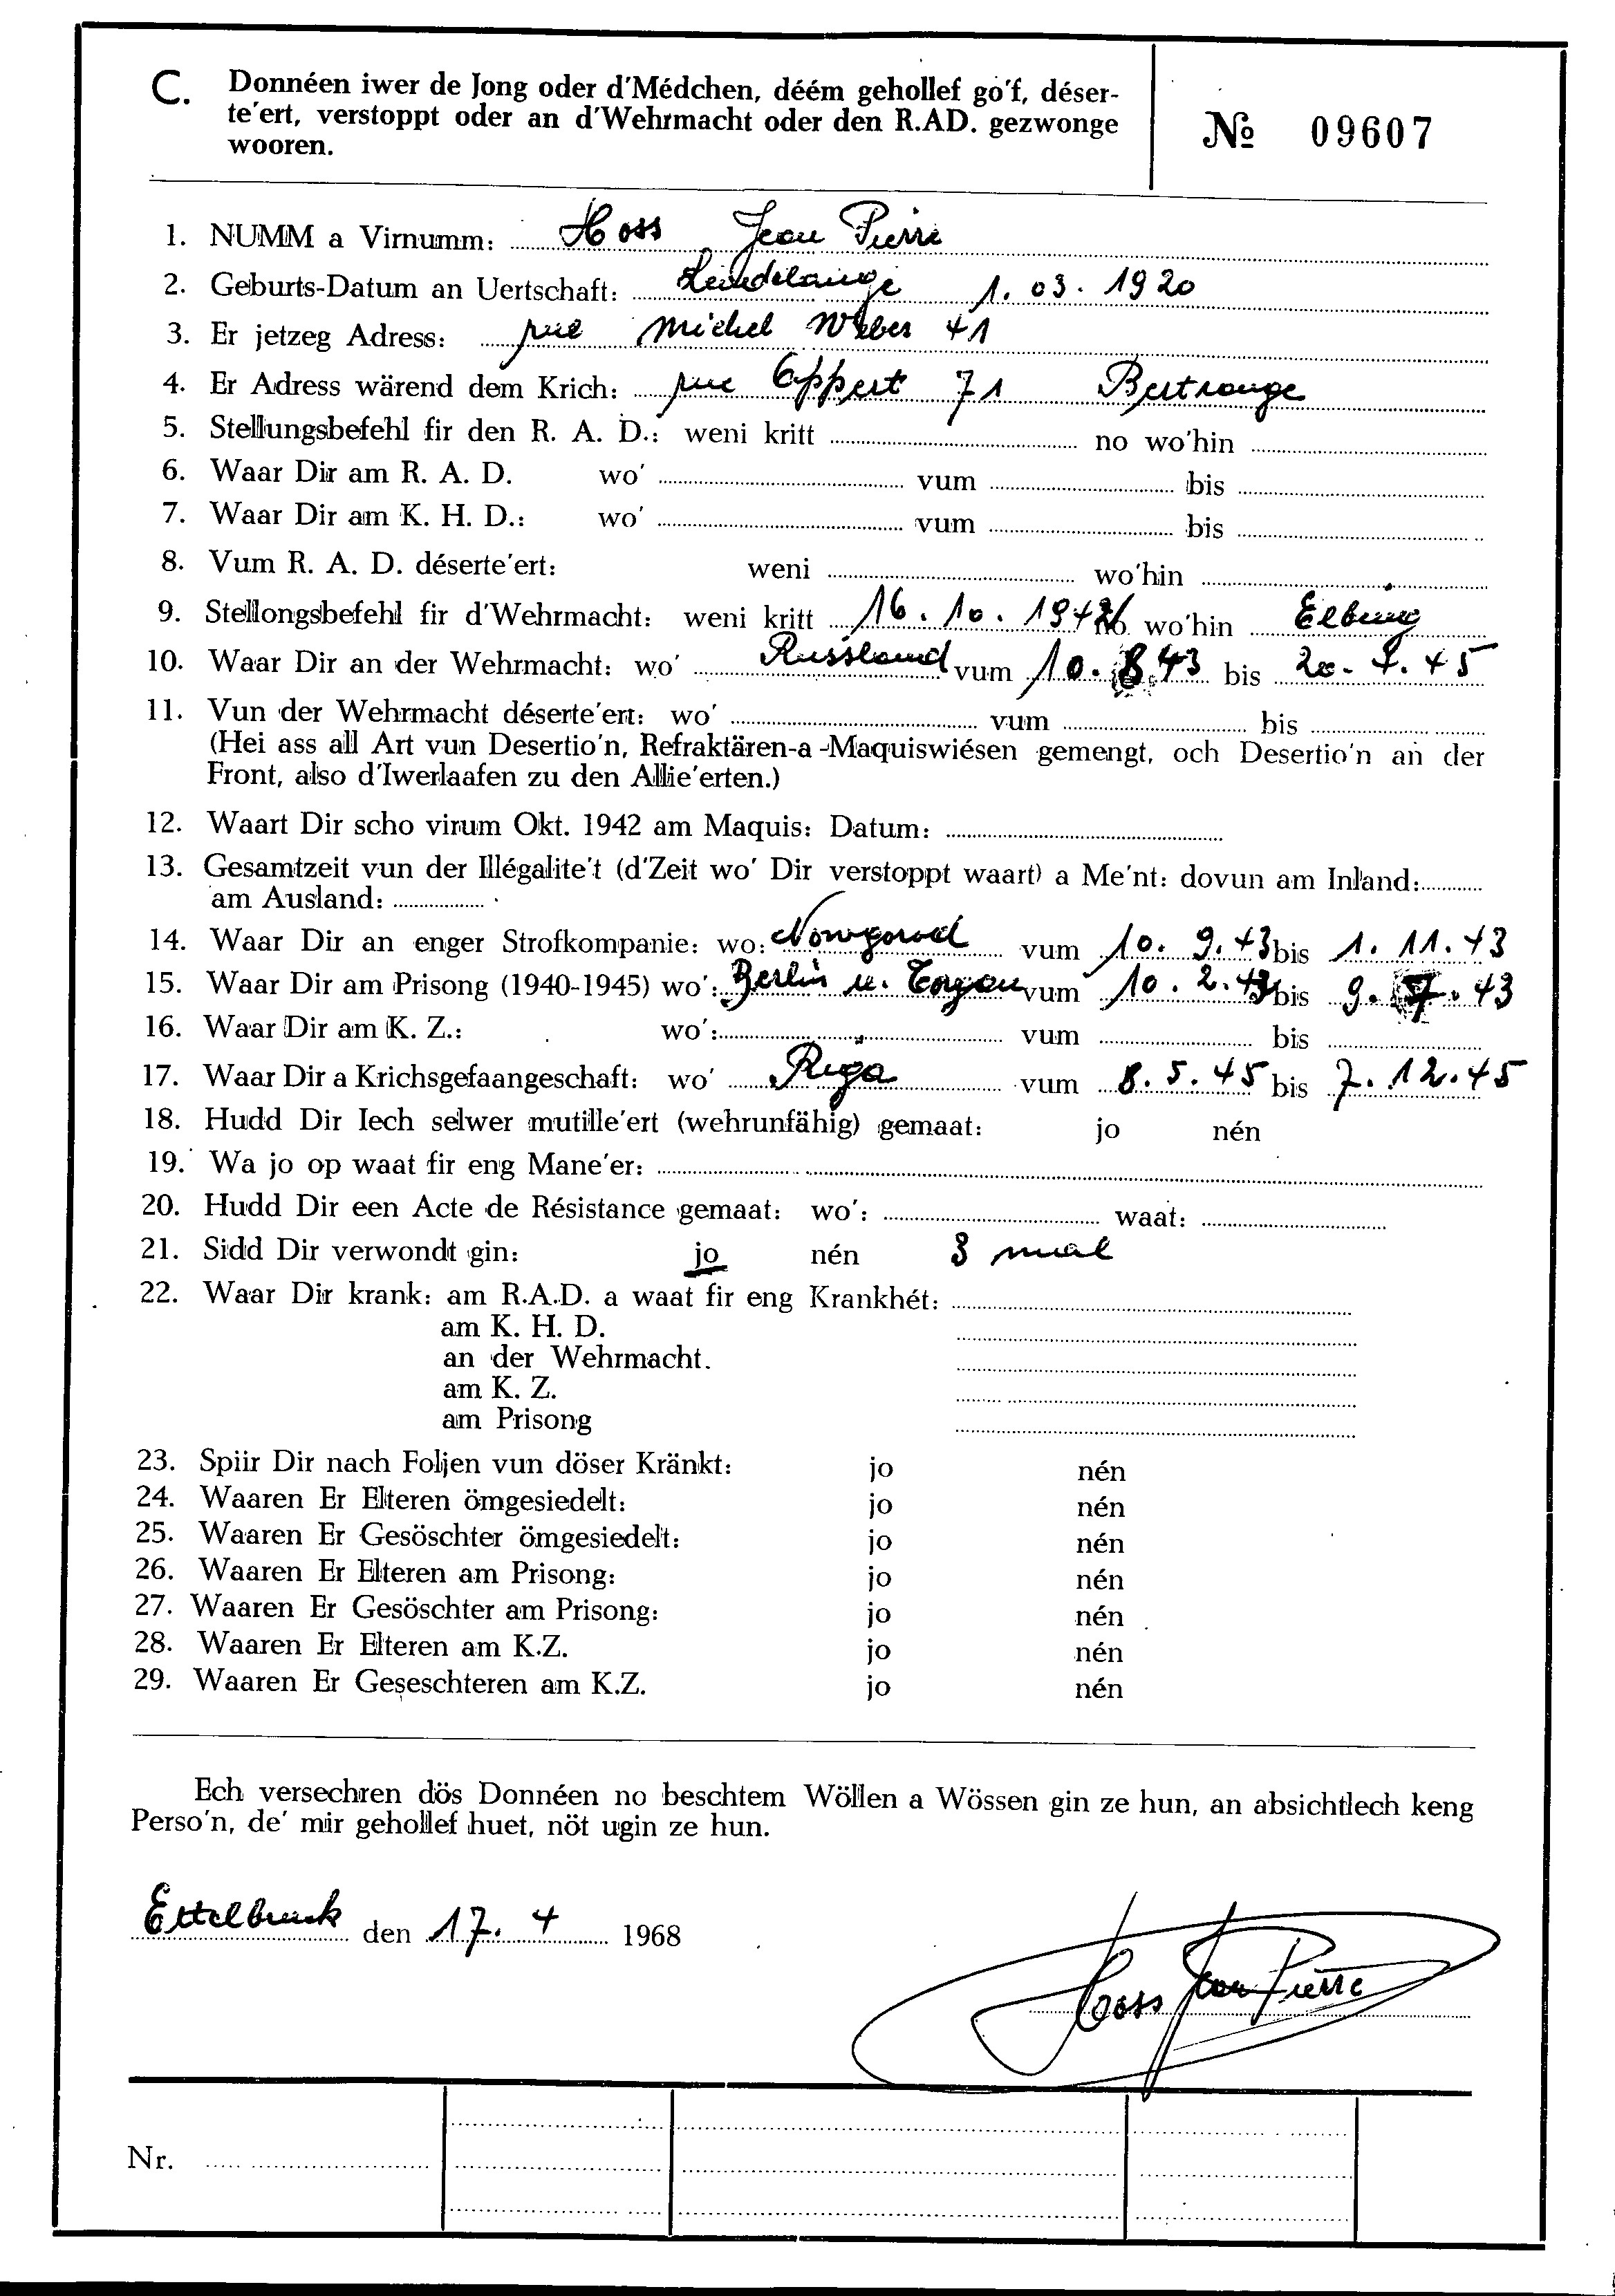 C. Donnéen iwer de Jong oder d'Médchen, déém gehollef go'f, déser-
te'ert, verstoppt oder an d'Wehrmacht oder den R.AD. gezwonge
wooren.
№ 09607
1. NUMM a Virnumm: Hoss Jean Pierre
2. Geburts-Datum an Uertschaft: Leudelange 1. 03. 1920
3. Er jetzeg Adress: rue Michel Weber 41
4. Er Adress wärend dem Krich: rue Eppert 71 Bertrange
5. Stellungsbefehl fir den R. A. D.: weni kritt no wo'hin
6. Waar Dir am R. A. D. wo' vum bis
7. Waar Dir am K. H. D.: wo' vum bis
8. Vum R. A. D. déserte'ert: weni wo'hin
9. Stellongsbefehl fir d'Wehrmacht: weni kritt 16. 10. 1942 no wo'hin Elbing
10. Waar Dir an der Wehrmacht: wo' Russland vum 10. 8 43 bis 45
11. Vun der Wehrmacht déserte'ert: wo' vum bis
(Hei ass all Art vun Desertio'n, Refraktären-a-Maquiswiésen gemengt, och Desertio'n an der
Front, also d'Iwerlaafen zu den Allie'erten.)
12. Waart Dir scho virum Okt. 1942 am Maquis: Datum:
13. Gesamtzeit vun der Illégalite't (d'Zeit wo' Dir verstoppt waart) a Me'nt: dovun am Inland:
am Ausland:
14. Waar Dir an enger Strofkompanie: wo: Nowgorod vum 10. 9. 43 bis 1. 11. 43
15. Waar Dir am Prisong (1940-1945) wo': Berlin u. Torgau vum 10. 2. 43 bis 9. 7. 43
16. Waar Dir am K. Z.: wo': vum bis
17. Waar Dir a Krichsgefaangeschaft: wo' Riga vum 8. 5. 45 bis 7. 12. 45
18. Hudd Dir Iech selwer mutille'ert (wehrunfähig) gemaat: jo nén
19. Wa jo op waat fir eng Mane'er:
20. Hudd Dir een Acte de Résistance gemaat: wo': waat:
21. Sidd Dir verwondt gin: jo nén 3 mal
22. Waar Dir krank: am R.A.D. a waat fir eng Krankhét:
am K. H. D.
an der Wehrmacht.
am K. Z.
am Prisong
23. Spiir Dir nach Foljen vun döser Kränkt: jo nén
24. Waaren Er Elteren ömgesiedelt: jo nén
25. Waaren Er Gesöschter ömgesiedelt: jo nén
26. Waaren Er Elteren am Prisong: jo nén
27. Waaren Er Gesöschter am Prisong: jo nén
28. Waaren Er Elteren am K.Z. jo nén
29. Waaren Er Geseschteren am K.Z. jo nén
Ech versechren dös Donnéen no beschtem Wöllen a Wössen gin ze hun, an absichtlech keng
Perso'n, de' mir gehollef huet, nöt ugin ze hun.
Ettelbruck den 17. 4 1968
Hoss Jean Pierre
Nr.